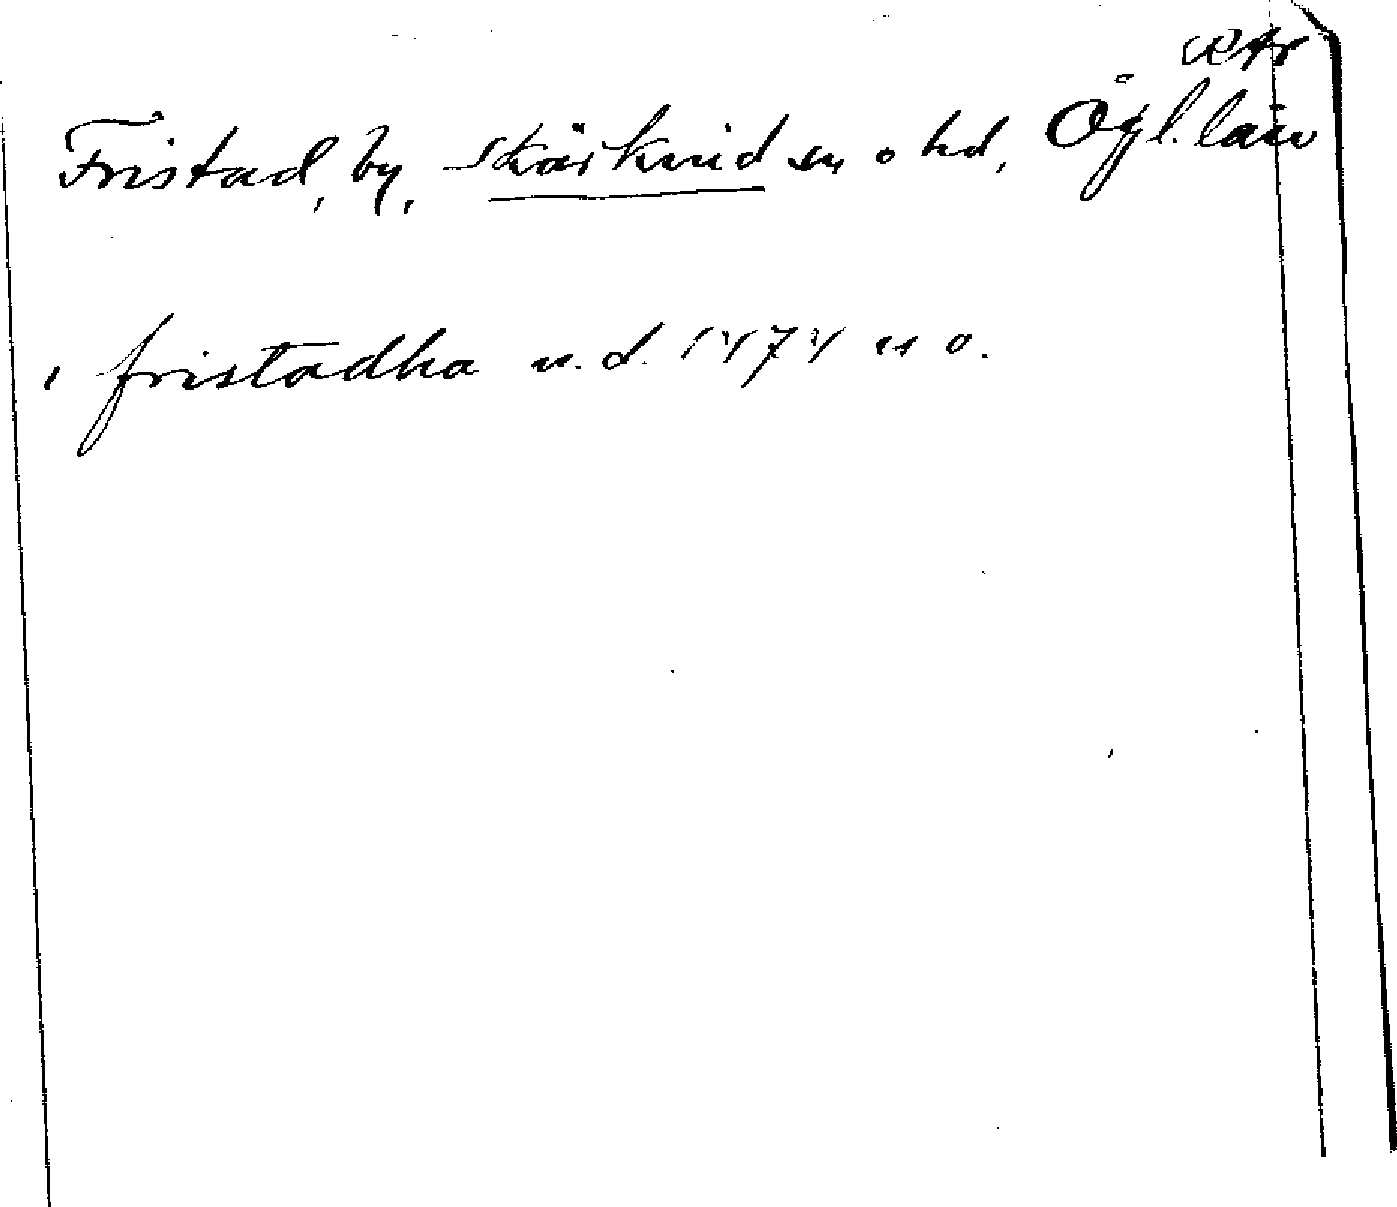 Fristad, by, Skärkind sn o hd, Ögl. län
i fristadha u. d. 1474 u o.